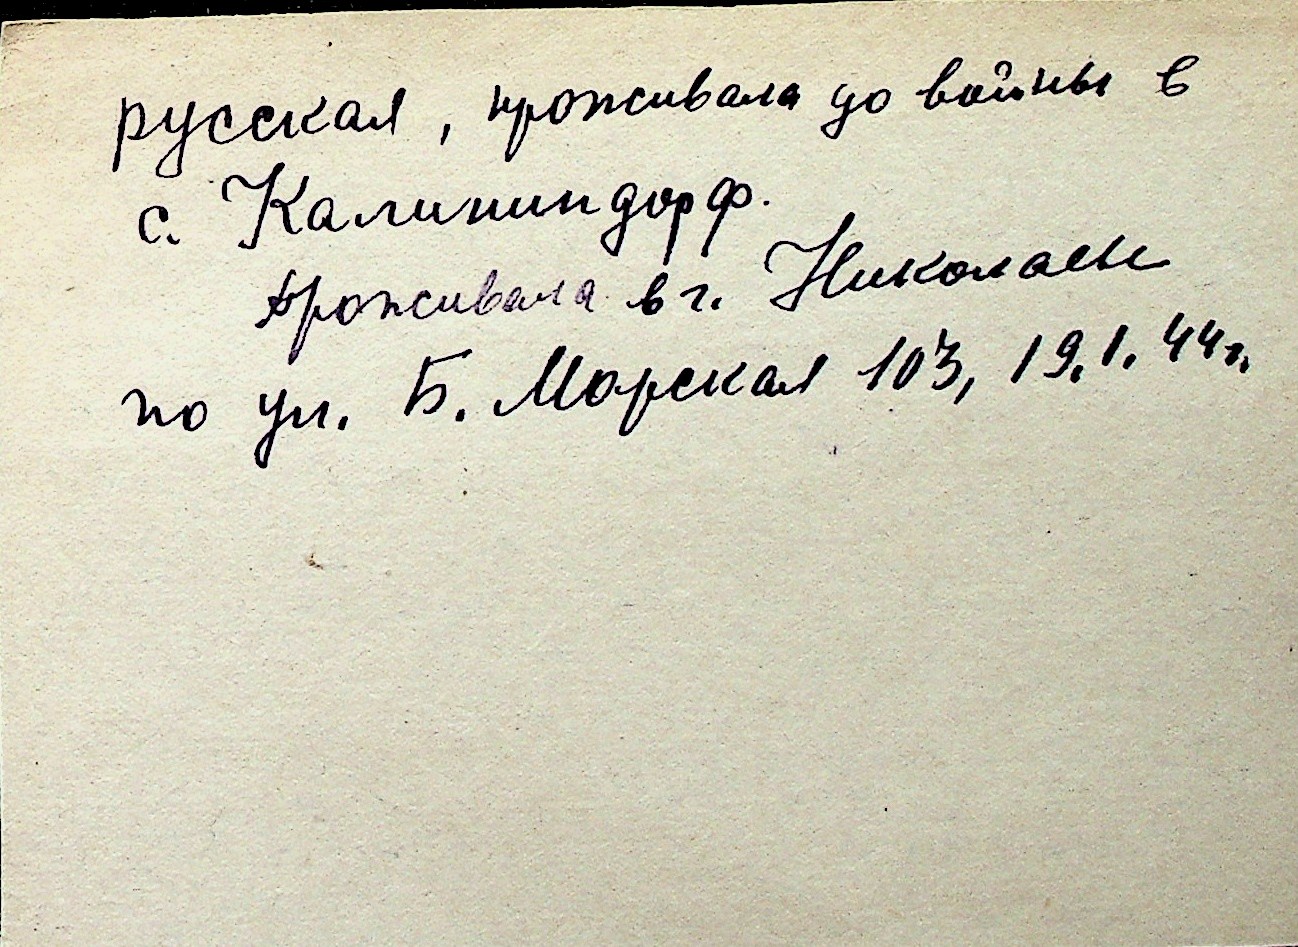 русская, проживала до войны в
с. Калининдорф.
проживала в г. Николаеве
по ул. Б. Морская 103, 19.1.44г.